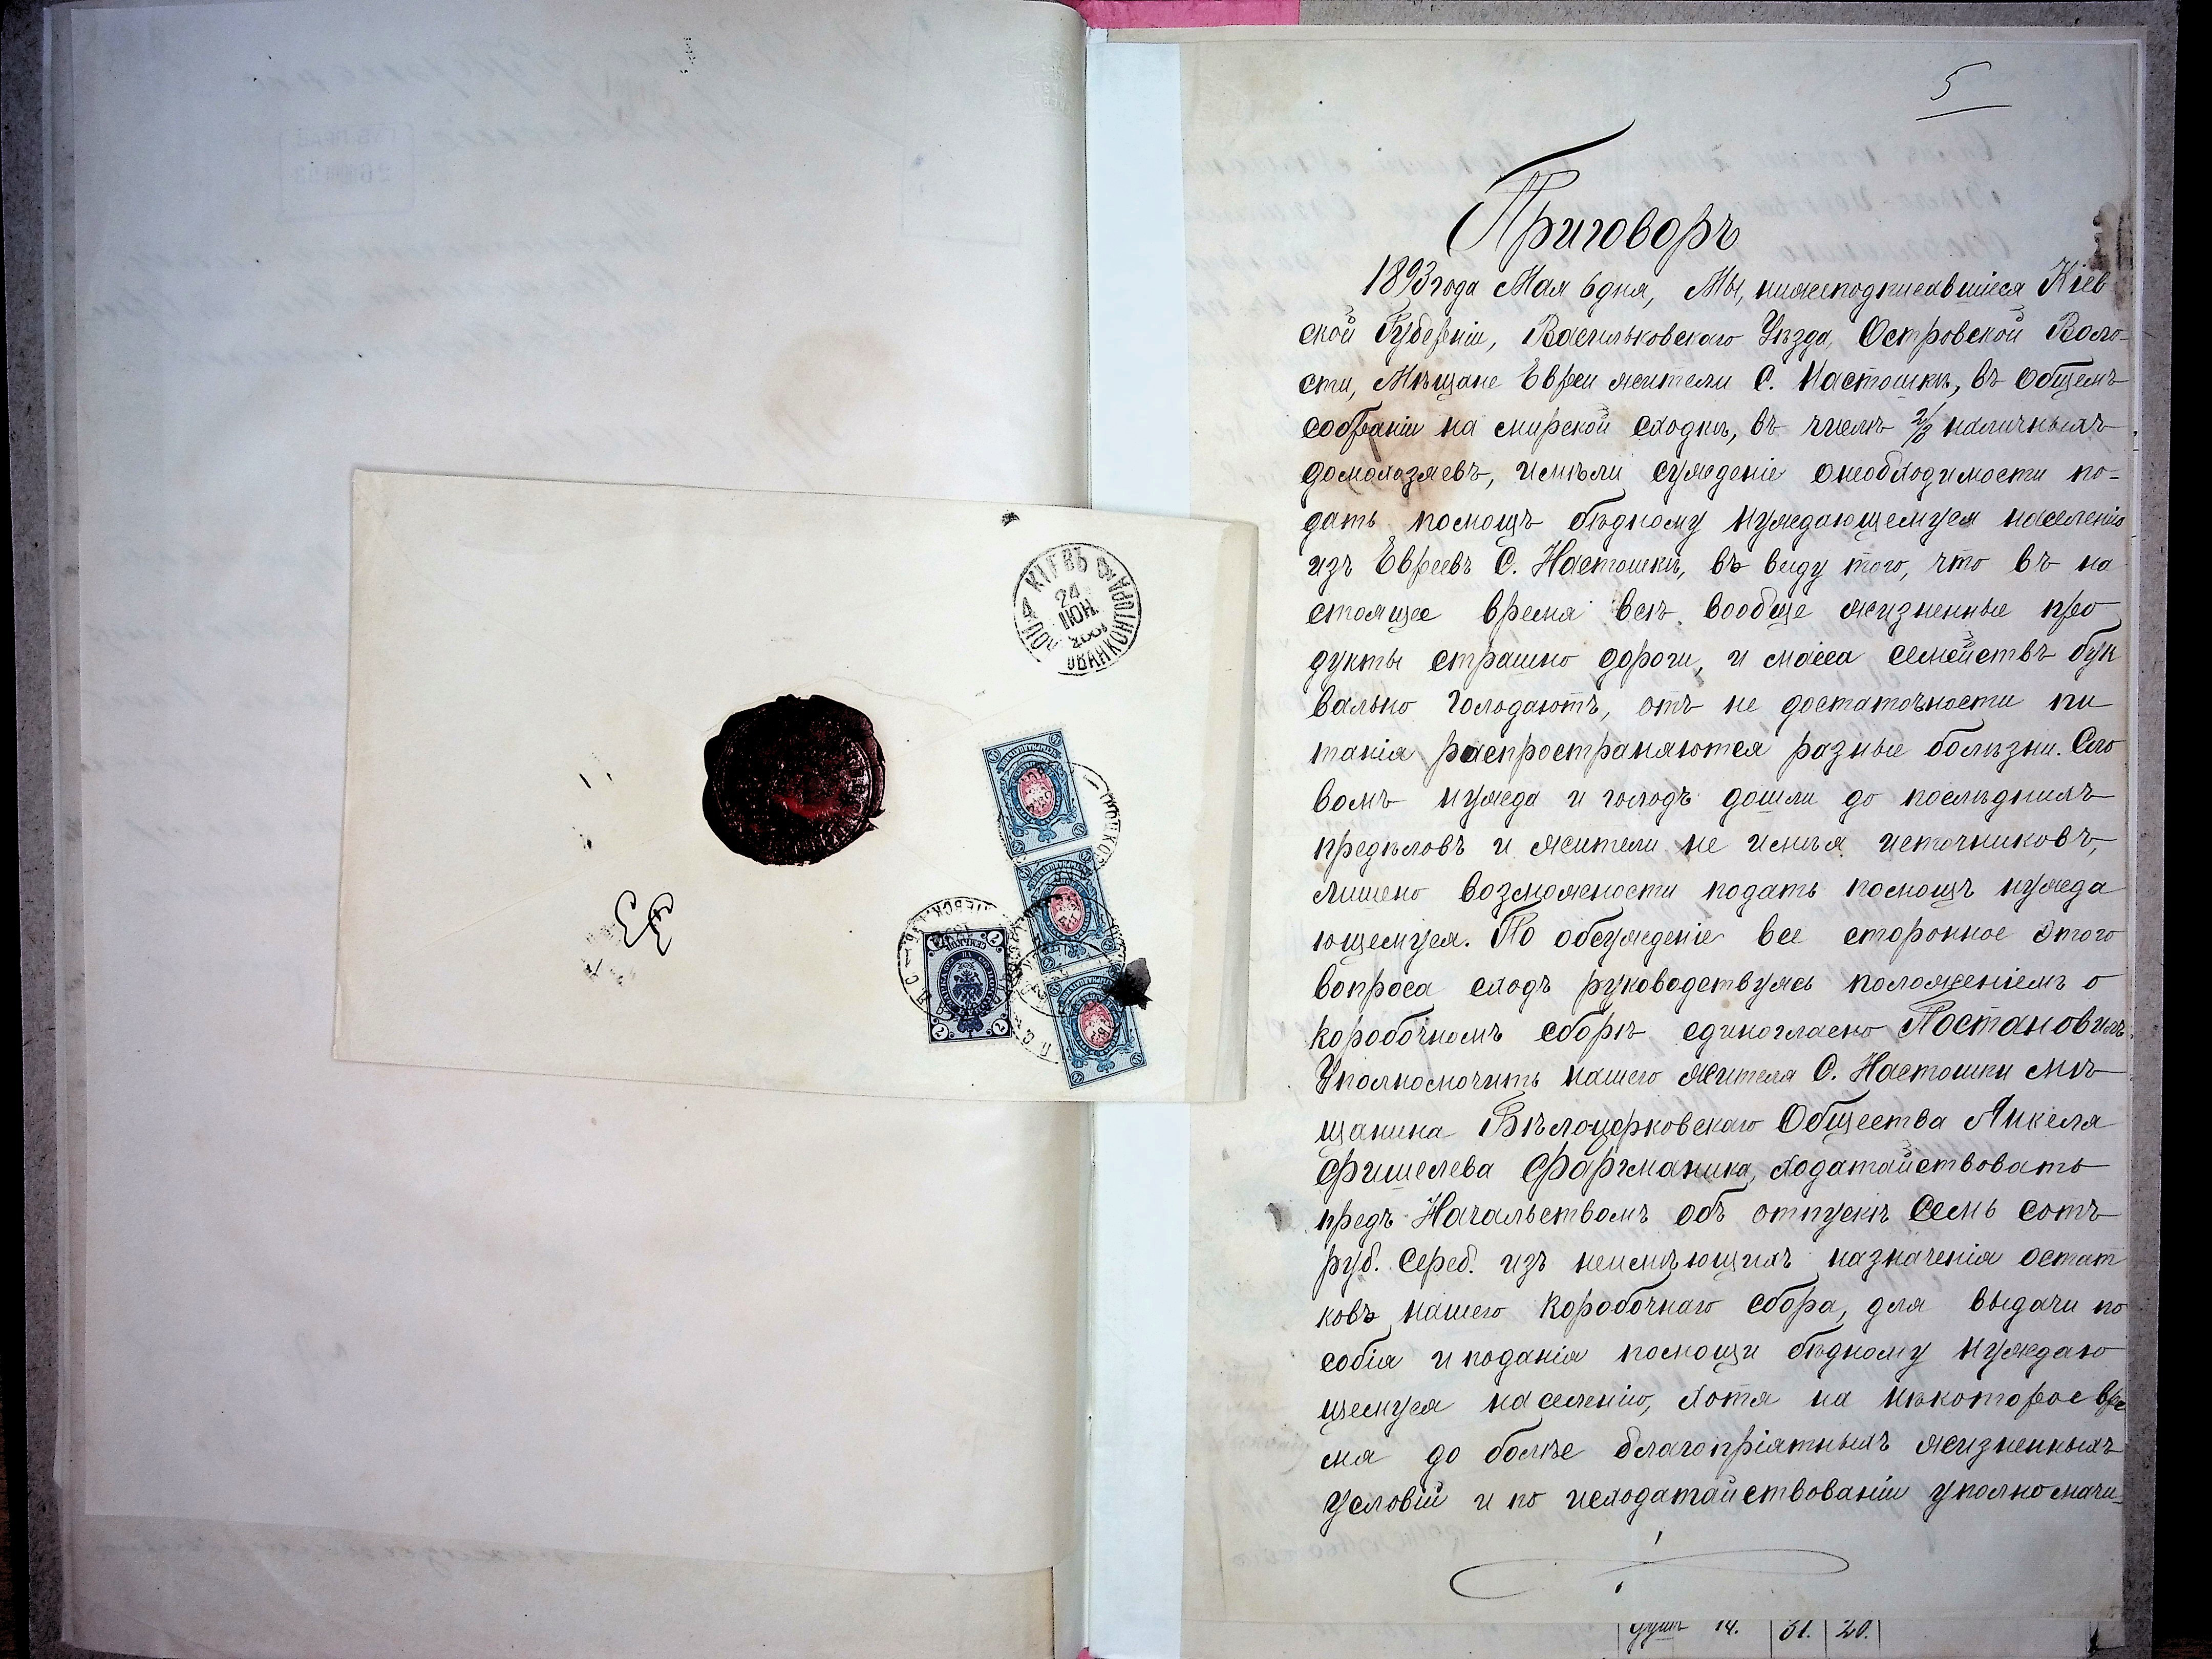 5
Приговоръ
1893 года Мая 6 дня, Мы, нижеподписавшіеся Кіев
ской Губерніи, Васильковскаго Уѣзда, Островской Воло-
сти, Мѣщане Евреи жители С. Настошки, въ общемъ
собраніи на мирской сходкѣ, въ числѣ 2/3 наличныхъ
домохозяевъ, имѣли сужденіе онеобходимости по-
дать помощъ бѣдному нуждающемуся населенію
изъ Евреевъ С. Настошки, въ виду того, что въ на
стоящее время всѣ вообще жизненные про
дукты страшно дороги, и масса семействъ бук
вально голодаютъ, отъ не достаточности пи
танія распространяются разные болѣзни. Сло
вомъ нужда и голодъ дошли до послѣднихъ
предѣловъ и жители не имѣя источниковъ,
лишено возможности подать помощъ нужда
ющемуся. По обсужденіе все сторонное этого
вопроса сходъ руководствуясь положеніемъ о
коробочномъ сборѣ единогласно Постановилъ.
Уполномочить нашего жителя С. Настошки мѣ
щанина Бѣлоцерковскаго Общества Янкеля
Фишелева Фаргманика, ходатайствовать
предъ Начальствомъ объ отпускѣ семь сотъ
руб. серед. изъ неимѣющихъ назначенія остат
ковъ нашего коробочнаго сбора, для выдачи по
собія и поданія помощи бѣдному нуждаю
щемуся населенію, хотя на нѣкоторое вре
мя до болѣе благопріятныхъ жизненныхъ
условій и по исходатайствованіи уполномочи-
душъ 14. 31. 20.
КІЕВЪ
24
ІЮН